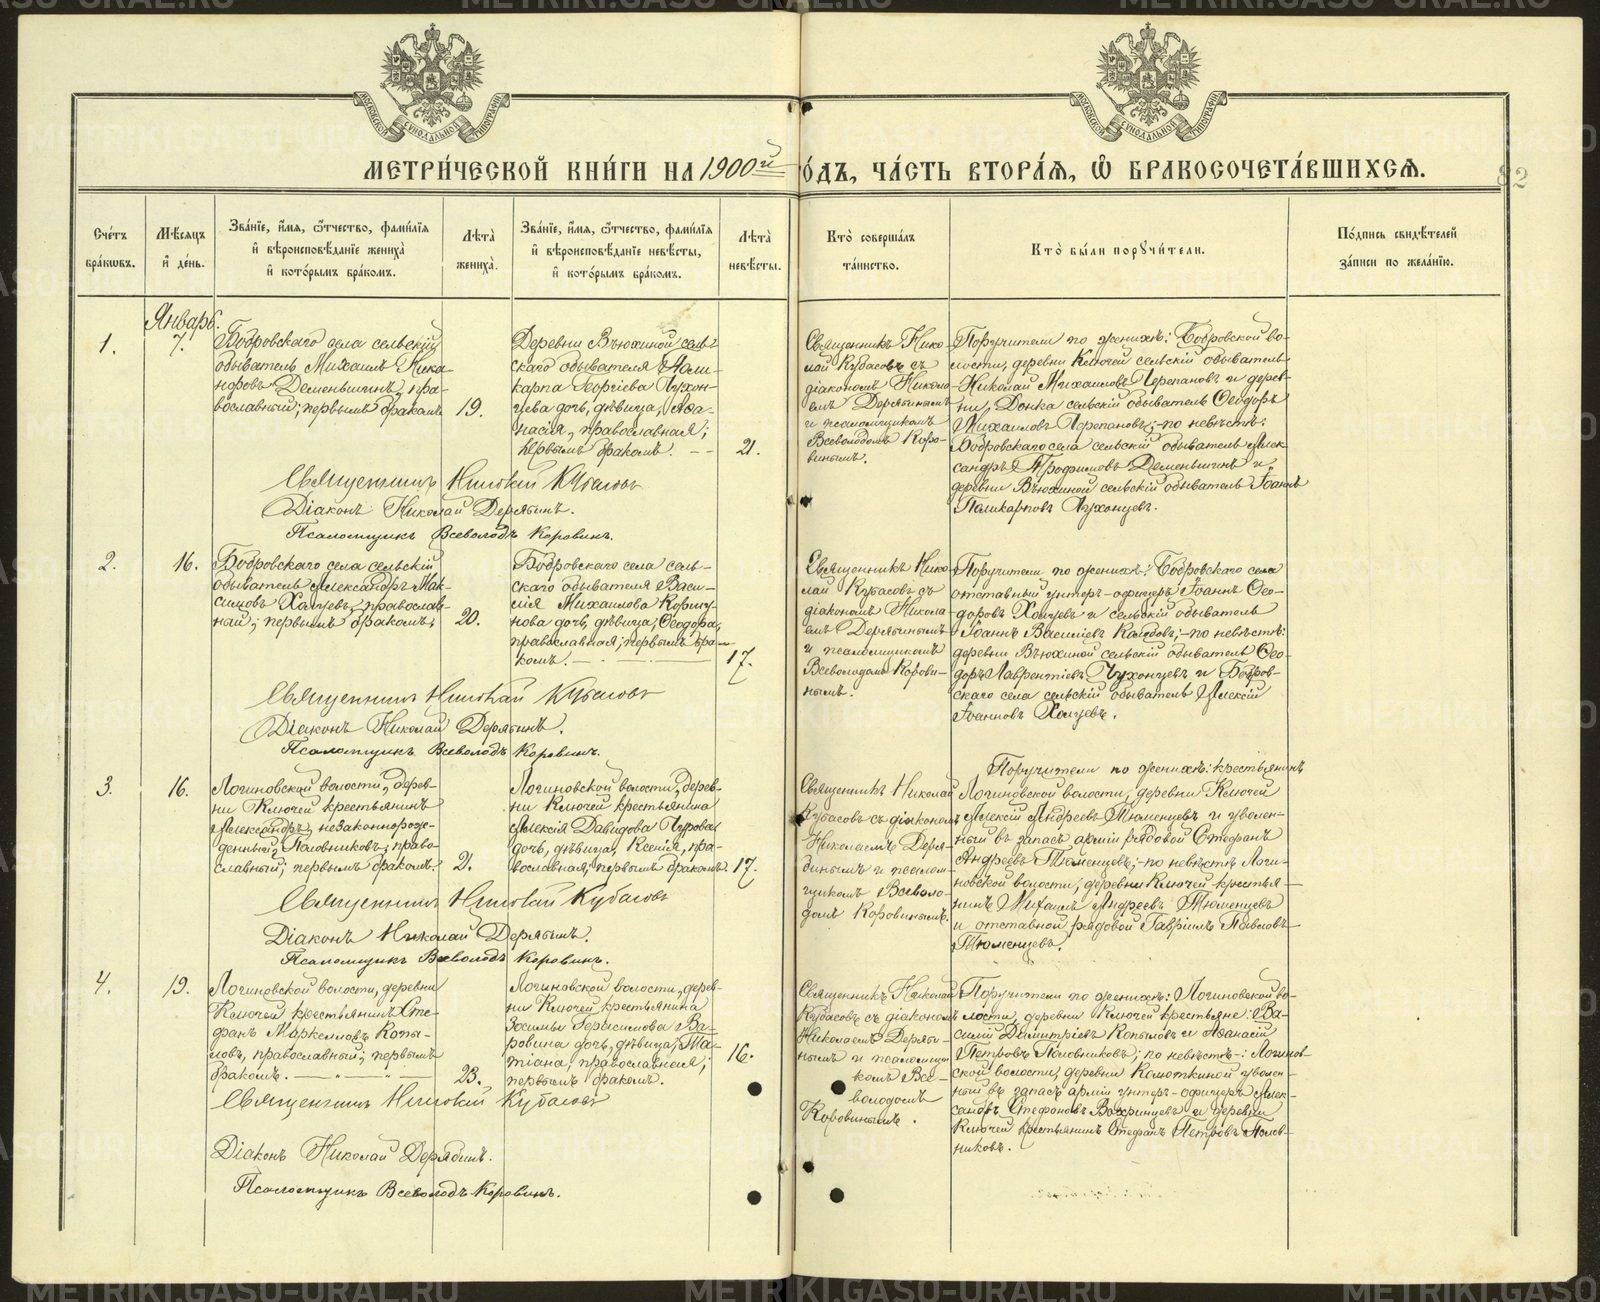 МЕТРИ́ЧЕСКОЙ КНИ́ГИ НА 1900й го́дъ, ча́сть втора́ѧ, ѡ҆ бракосочета́вшихсѧ.
82
Сче́тъ бра́кѡвъ.
Мѣ́сѧцъ и҆ де́нь.
Зва́нїе, и҆́мѧ, ѻ҆́тчество, фами́лїѧ
и҆ вѣ́роисповѣ́данїе жениха̀
и҆ кото́рымъ бра́комъ.
Лѣ́та̀ жениха̀.
Зва́нїе, и҆́мѧ, ѻ҆́тчество, фами́лїѧ
и҆ вѣ́роисповѣ́данїе невѣ́сты,
и҆ кото́рымъ бра́комъ.
Лѣ́та̀ невѣ́сты.
Кто̀ соверша́лъ та́инство.
Кто̀ бы́ли порꙋчи́тели.
По́дпись свидѣ́телей
за́писи по жела́нїю.
Январь.
1.
7.
Бобровскаго села сельскій
обыватель Михаилъ Ника-
норовъ Деменьшинъ, пра-
вославный; первымъ бракомъ
19.
Деревни Вьюхиной сель-
скаго обывателя Поли-
карпа Георгіева Чухон-
цева дочь, дѣвица, Афа-
насія, православная;
первымъ бракомъ. - -
21.
Священникъ Нико-
лай Кубасовъ съ
діакономъ Никола-
емъ Дерябинымъ
и псаломщикомъ
Всеволодомъ Коро-
винымъ.
Поручители по женихѣ: Бобровской во-
лости, деревни Ключей сельскій обыватель
Николай Михаиловъ Черепановъ и дерев-
ни Донка сельскій обыватель Ѳеодоръ
Михаиловъ Черепановъ; - по невѣстѣ:
Бобровскаго села сельскій обыватель Алек-
сандръ Трофимовъ Деменьшинъ и
деревни Вьюхиной сельскій обыватель Іоаннъ
Поликарповъ Чухонцевъ.
Священникъ Николай Кубасовъ
Діаконъ Николай Дерябинъ.
Псаломщикъ Всеволодъ Коровинъ.
2.
16.
Бобровскаго села сельскій
обыватель Александръ Мак-
симовъ Халуевъ, православ-
ный; первымъ бракомъ;
20.
Бобровскаго села сель-
скаго обывателя Васи-
лія Михаилова Коршу-
нова дочь, дѣвица, Ѳеодора,
православная; первымъ бра-
комъ.
17.
Священникъ Нико-
лай Кубасовъ съ
діакономъ Никола-
емъ Дерябинымъ
и псаломщикомъ
Всеволодомъ Корови-
нымъ.
Поручители по женихѣ: Бобровскаго села
отставный унтеръ-офицеръ Іоаннъ Ѳео-
доровъ Халуевъ и сельскій обыватель
Іоаннъ Василіевъ; - по невѣстѣ:
деревни Вьюхиной сельскій обыватель Ѳео-
доръ Лаврентіевъ Чухонцевъ и Бобров-
скаго села сельскій обыватель Алексій
Іоанновъ Халуевъ.
Священникъ Николай Кубасовъ
Діаконъ Николай Дерябинъ.
Псаломщикъ Всеволодъ Коровинъ.
3.
16.
Логиновской волости, дерев-
ни Ключей крестьянинъ
Александръ, незаконнорож-
денный, Половниковъ, право-
славный; первымъ бракомъ.
21.
Логиновской волости, дерев-
ни Ключей крестьянина
Алексія Давидова Чурова
дочь, дѣвица, Ксенія, пра-
вославная, первымъ бракомъ.
17.
Священникъ Николай
Кубасовъ съ діакономъ
Николаемъ Деря-
бинымъ и псалом-
щикомъ Всеволо-
домъ Коровинымъ.
Поручители по женихѣ: крестьянинъ
Логиновской волости, деревни Ключей
Алексій Андреевъ Тюменцевъ и уволен-
ный въ запасъ арміи рядовой Стефанъ
Андреевъ Тюменцевъ; - по невѣстѣ Логи-
новской волости, деревни Ключей крестья-
нинъ Михаилъ Андреевъ Тюменцевъ
и отставной рядовой Гавріилъ Павловъ
Тюменцевъ.
Священникъ Николай Кубасовъ
Діаконъ Николай Дерябинъ.
Псаломщикъ Всеволодъ Коровинъ.
4.
19.
Логиновской волости, деревни
Ключей крестьянинъ Сте-
фанъ Маркелловъ Копы-
ловъ, православный; первымъ
бракомъ.
23.
Логиновской волости, дерев-
ни Ключей крестьянина
Зосимы Герасимова Ва-
ровина дочь, дѣвица, Та-
тіана, православная;
первымъ бракомъ.
16.
Священникъ Николай
Кубасовъ съ діакономъ
Николаемъ Деряби-
нымъ и псаломщи-
комъ Все-
володомъ
Коровинымъ.
Поручители по женихѣ: Логиновской во-
лости, деревни Ключей крестьяне: Ва-
силій Димитріевъ Копыловъ и Афанасій
Петровъ Половниковъ; по невѣстѣ: Логинов-
ской волости, деревни Колюткиной уволен-
ный въ запасъ арміи унтеръ-офицеръ Алек-
сандръ Стефановъ Вахринцевъ и деревни
Ключей крестьянинъ Стефанъ Петровъ Полов-
никовъ.
Священникъ Николай Кубасовъ
Діаконъ Николай Дерябинъ.
Псаломщикъ Всеволодъ Коровинъ.
METRIKI.GASO-URAL.RU